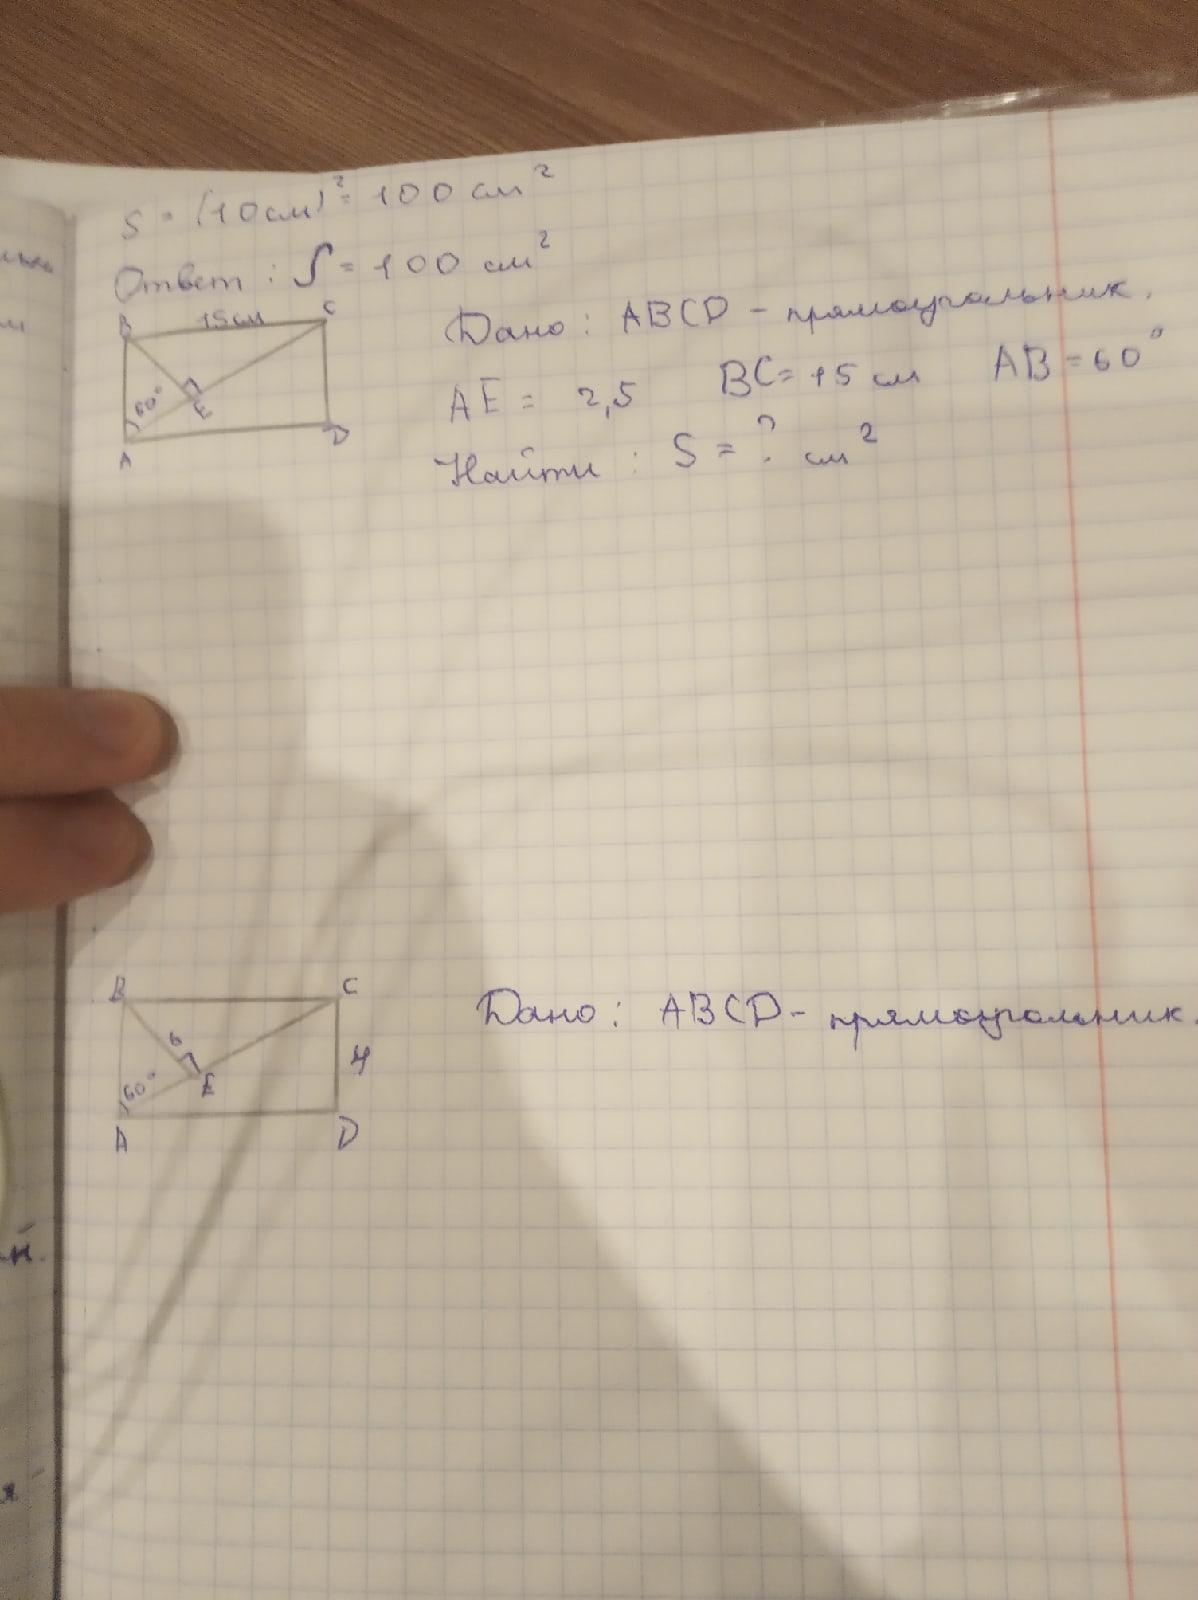 S = (10 см)² = 100 см²
Ответ : S = 100 см²
B 15 см C
Дано : ABCD - прямоугольник.
AE = 2,5 BC = 15 см AB = 60°
60° E
A D
Найти : S = ? см²
B C
Дано : ABCD - прямоугольник.
6 4
60° E
A D
й.